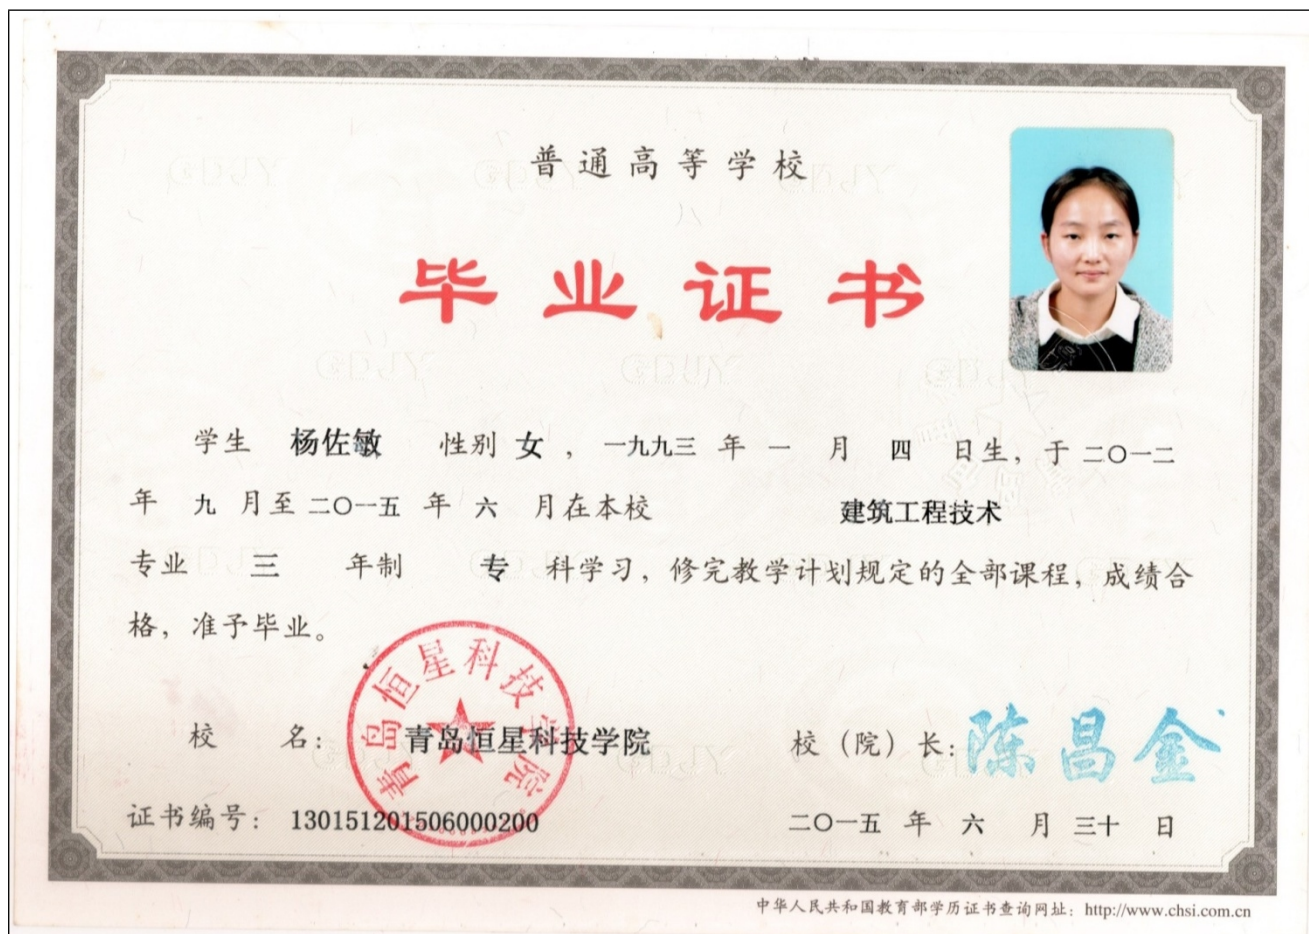 普通高等学校
毕业证书
学生 杨佐敏 性别 女 ，一九九三 年 一 月 四 日生，于 二〇一二
年 九 月至 二〇一五 年 六 月在本校 建筑工程技术
专业 三 年制 专 科学习，修完教学计划规定的全部课程，成绩合
格，准予毕业。
青岛恒星科技学院
校 名：青岛恒星科技学院 校（院）长：陈昌金
证书编号：130151201506000200 二〇一五 年 六 月 三十 日
中华人民共和国教育部学历证书查询网址：http://www.chsi.com.cn